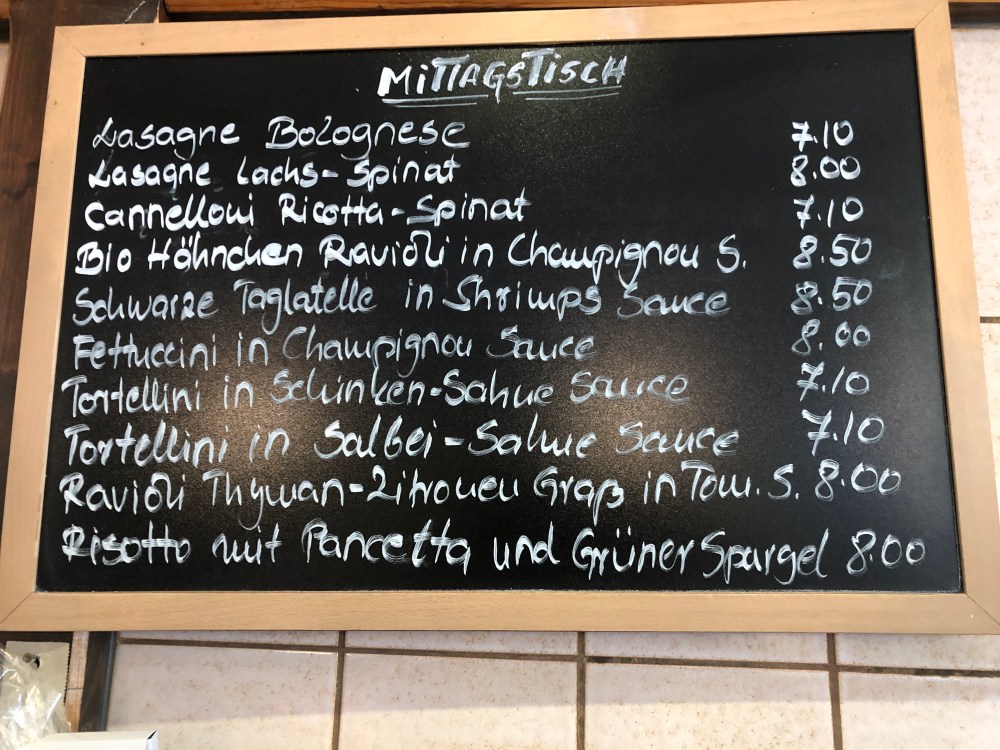 MiTTAGSTiSCH
Lasagne Bolognese 7.10
Lasagne Lachs-Spinat 8.00
Cannelloni Ricotta-Spinat 7.10
Bio Höhnchen Ravioli in Champignon S. 8.50
Schwarze Taglatelle in Shrimps Sauce 8.50
Fettuccini in Champignon Sauce 8.00
Tortellini in Schinken-Sahne Sauce 7.10
Tortellini in Salbei-Sahne Sauce 7.10
Ravioli Thyman-Zitronen Graß in Tom. S. 8.00
Risotto mit Pancetta und Grüner Spargel 8.00